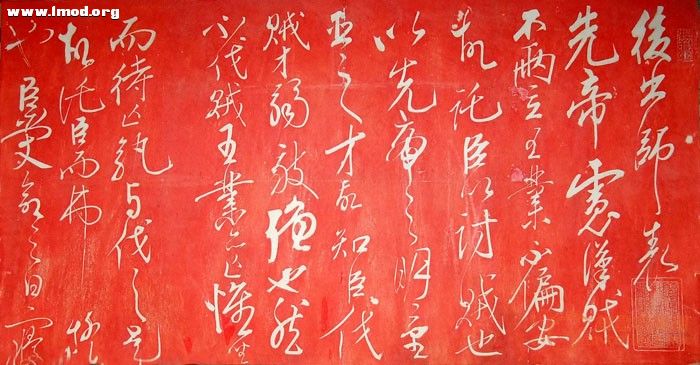 www.lmod.org
後出師表
先帝慮漢賊
不兩立王業不偏安
故託臣以討賊也
以先帝之明量
臣之才故知臣伐
賊才弱敵強也然
不伐賊王業亦亡惟坐
而待亡孰與伐之是
故託臣而弗疑
也臣受命之日寢